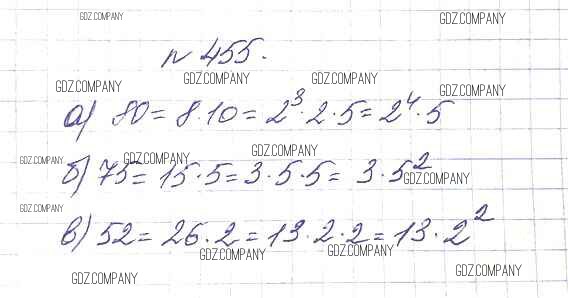 GDZ.COMPANY GDZ.COMPANY
№ 455.
GDZ.COMPANY GDZ.COMPANY GDZ.COMPANY GDZ.COMPANY
а) 80 = 8·10 = 2³·2·5 = 2⁴·5
GDZ.COMPANY GDZ.COMPANY GDZ.COMPANY
б) 75 = 15·5 = 3·5·5 = 3·5²
GDZ.COMPANY
GDZ.COMPANY
в) 52 = 26·2 = 13·2·2 = 13·2²
GDZ.COMPANY GDZ.COMPANY
GDZ.COMPANY GDZ.COMPANY